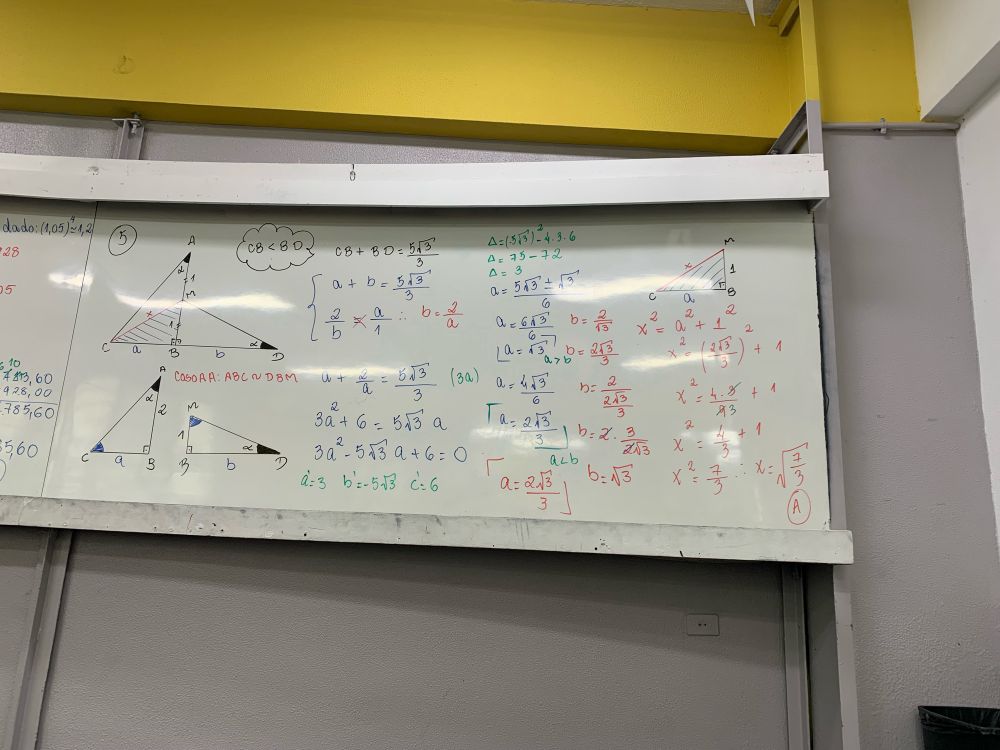 dado: (1,05)⁴ ≅ 1,2
928
05
928,00
785,60
5,60
5
A
α
1
M
x
1
C
a
B
b
α
D
CB < BD
CB + BD = 5√3/3
a + b = 5√3/3
2/b = a/1 ∴ b = 2/a
CASO AA: ABC ~ DBM
A
α
2
C
a
B
M
1
B
b
α
D
a + 2/a = 5√3/3 (3a)
3a² + 6 = 5√3 a
3a² - 5√3 a + 6 = 0
a' = 3 b' = -5√3 c' = 6
Δ = (5√3)² - 4.3.6
Δ = 75 - 72
Δ = 3
a = 5√3 ± √3/6
a = 6√3/6 b = 2/√3
a = √3 b = 2√3/3
a > b
a = 4√3/6 b = 2/(2√3/3)
a = 2√3/3 b = 2 . 3/2√3
a < b
a = 2√3/3 b = √3
M
x
1
C
a
B
x² = a² + 1²
x² = (2√3/3)² + 1
x² = 4.3/93 + 1
x² = 4/3 + 1
x² = 7/3 ∴ x = √7/3
A